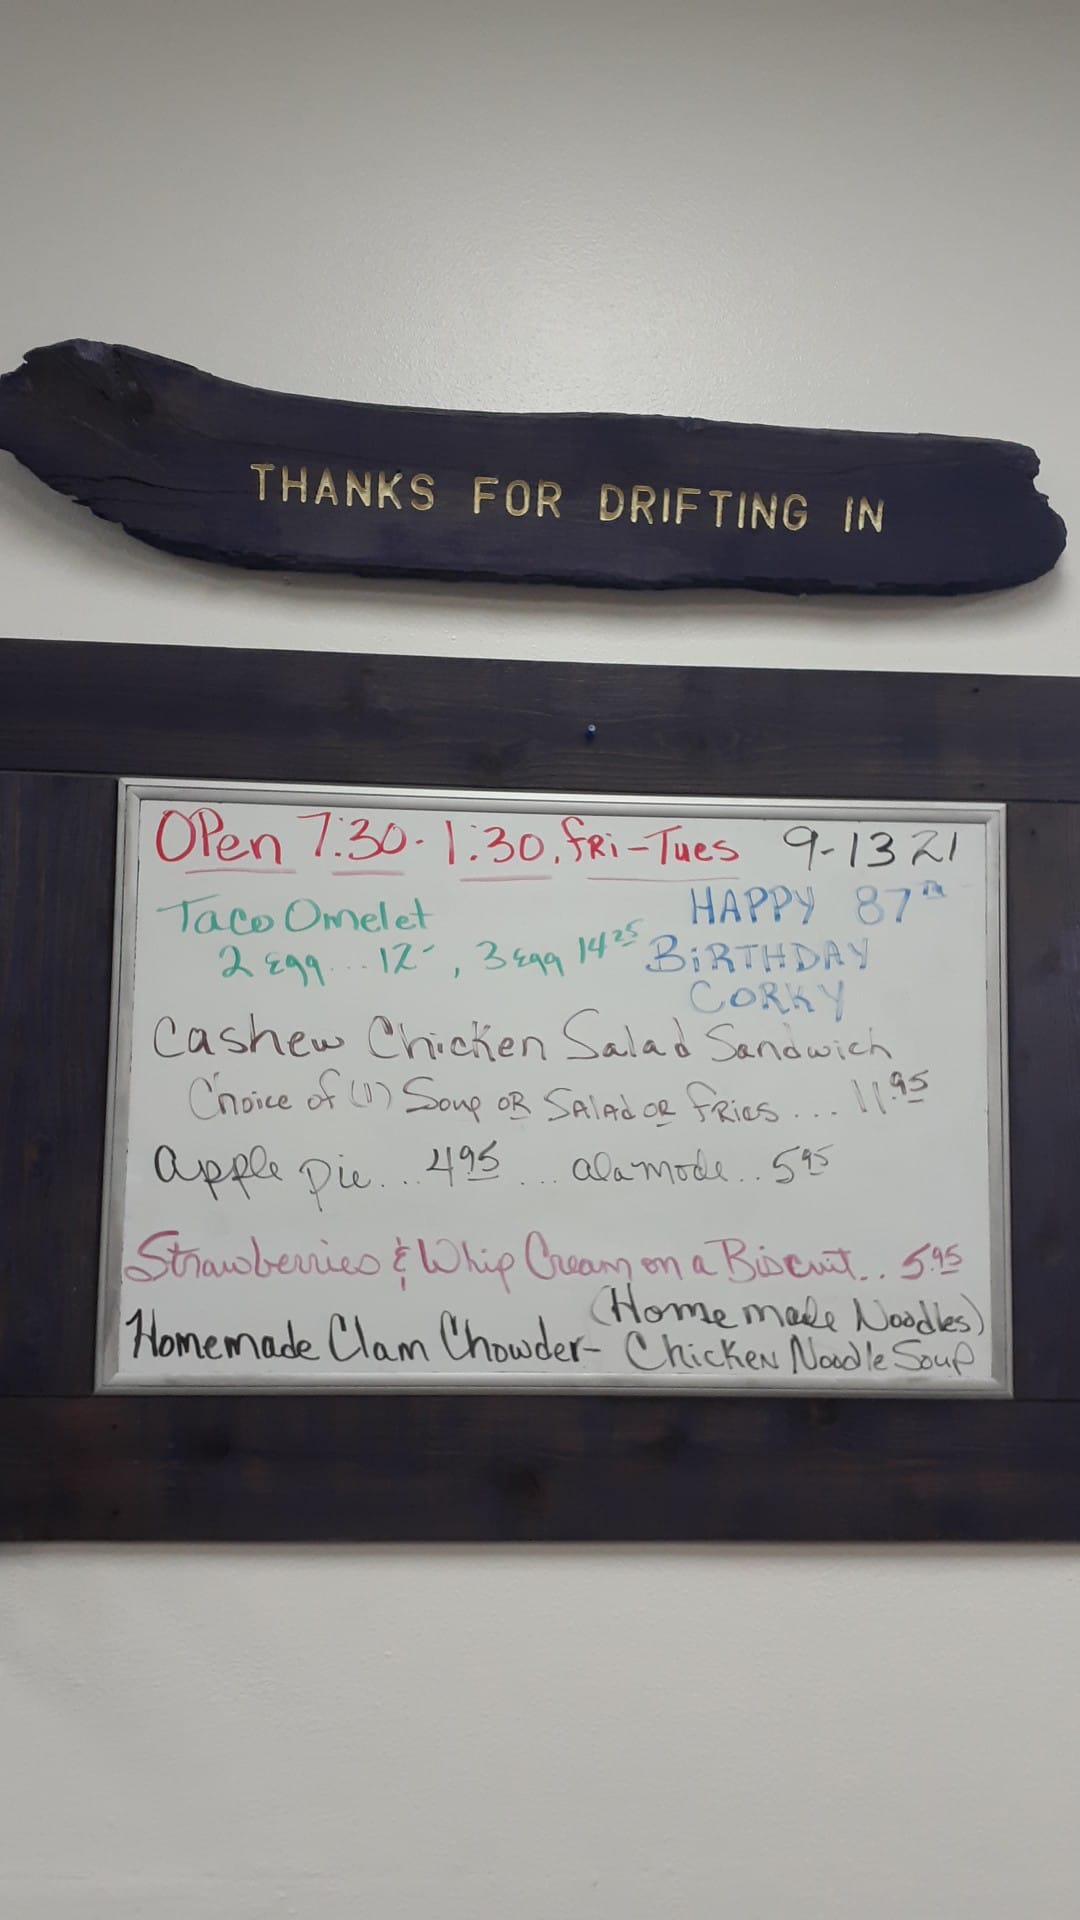 THANKS FOR DRIFTING IN
OPen 7:30-1:30, fRi-Tues 9-13 21
Taco Omelet
2 Egg... 12-, 3 Egg 14 25
HAPPY 87TH
BiRTHDAY
CORKY
Cashew Chicken Salad Sandwich
Choice of (1) Soup OR SALAd OR fRies... 11.95
apple pie....495 ... alamode.. 5 95
Strawberries & Whip Cream on a Biscuit.. 5.95
(Homemade Noodles)
Homemade Clam Chowder- Chicken Noodle Soup